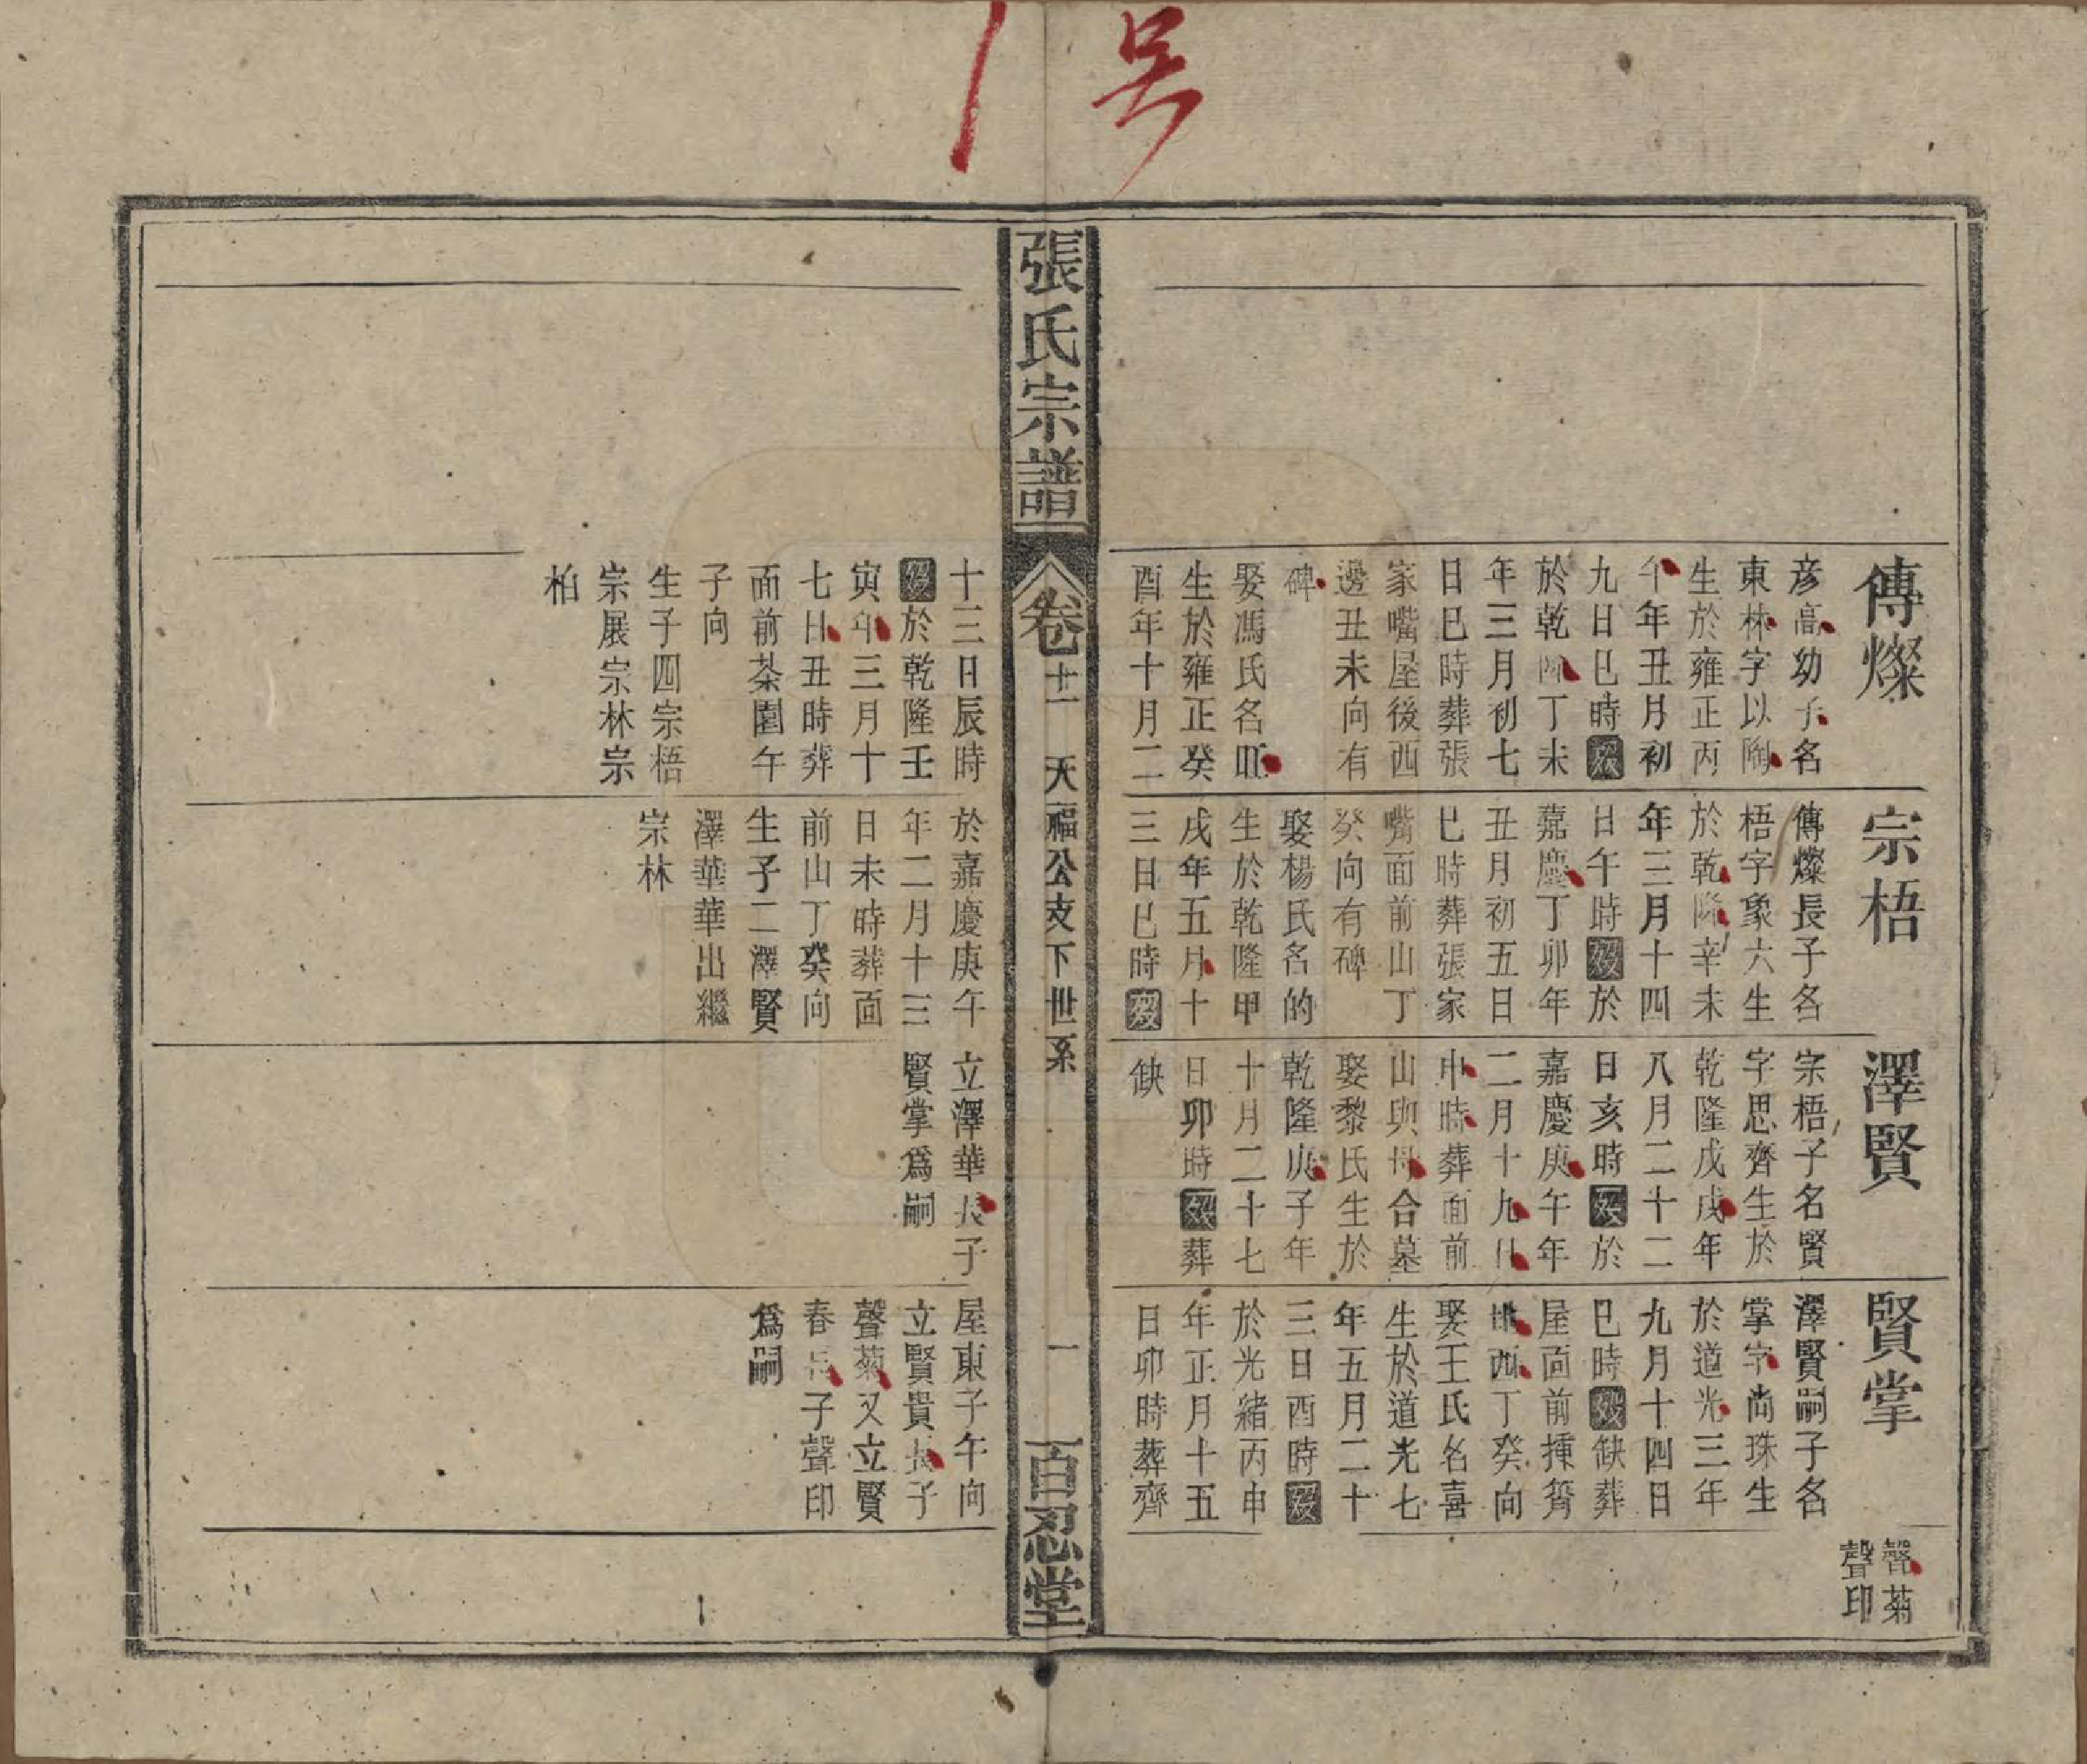 吴
傳燦
彦高幼子名
東林字以陶
生於雍正丙
午年丑月初
九日巳時歿
於乾隆丁未
年三月初七
日巳時葬張
家嘴屋後西
邊丑未向有
碑
娶馮氏名
生於雍正癸
酉年十月二
宗梧
傳燦長子名
梧字象六生
於乾隆辛未
年三月十四
日午時歿於
嘉慶丁卯年
丑月初五日
巳時葬張家
嘴面前山丁
癸向有碑
娶楊氏名的
生於乾隆甲
戌年五月十
三日巳時歿
澤賢
宗梧子名賢
字思齊生於
乾隆戊戌年
八月二十二
日亥時歿於
嘉慶庚午年
二月十九日
申時葬面前
山與母合墓
娶黎氏生於
乾隆庚子年
十月二十七
日卯時歿葬
缺
賢掌
澤賢嗣子名
掌字尚珠生
於道光三年
九月十四日
巳時歿缺葬
屋面前
西丁癸向
娶王氏名喜
生於道光七
年五月二十
三日酉時歿
於光緒丙申
年正月十五
日卯時葬齊
聲菊
聲印
張氏宗譜
卷十一 天福公支下世系 一
百忍堂
十三日辰時
歿於乾隆壬
寅年三月十
七日丑時葬
面前茶園午
子向
生子四宗梧
宗展宗林宗
柏
於嘉慶庚午
年二月十三
日未時葬面
前山丁癸向
生子二澤賢
澤華華出繼
宗林
立澤華長子
賢掌爲嗣
屋東子午向
立賢貴長子
聲菊又立賢
春子聲印
爲嗣